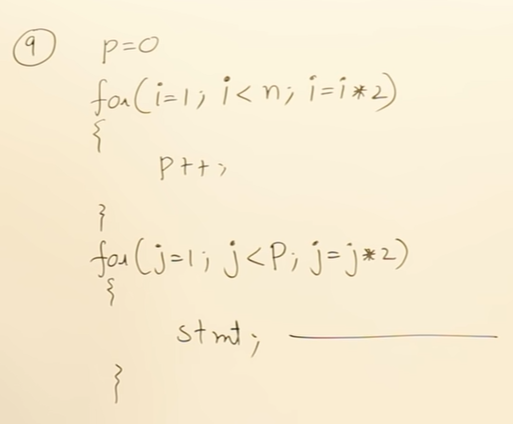 9 p=0
for(i=1; i<n; i=i*2)
{
p++;
}
for(j=1; j<P; j=j*2)
{
stmt;
}